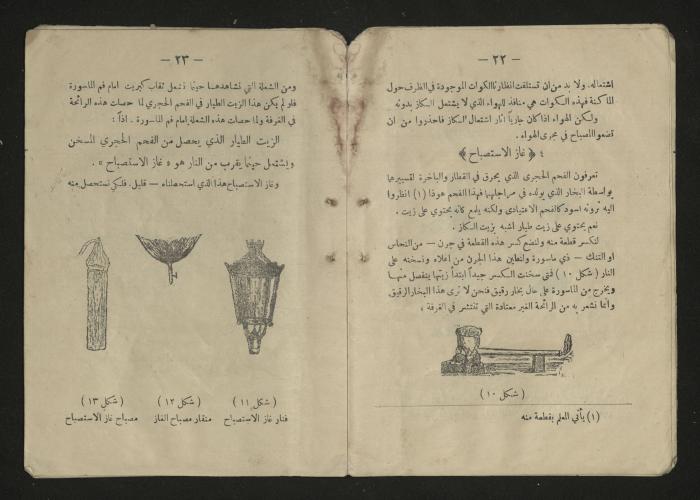 — ٢٢ —
اشتعاله. ولا بد من ان تستلفت انظارنا الكوات الموجودة في الظرف حول
الماكنة فهذه الكوات هي منافذ للهواء الذي لا يشتعل الكاز بدونه
ولكن الهواء اذا كان جارياً اثار اشتعال الكاز فاحذروا من ان
تضعوا المصابيح في مجرى الهواء .
٤ ﴿ غاز الاستصباح ﴾
تعرفون الفحم الحجرى الذي يحرق في القطار والباخرة لتسييرها
بواسطة البخار الذي يولده في مراجلهما فهذا الفحم هوذا (١) انظروا
اليه ترونه اسود كالفحم الاعتيادى ولكنه يلمع كانه يحتوي على زيت .
نعم يحتوي على زيت طيار اشبه بزيت الكاز .
لنكسر قطعة منه ولنضع كسر هذه القطعة في جرن — من النحاس
او التنك — ذي ماسورة ولنطين هذا الجرن من اعلاه ونسخنه على
النار ( شكل ١٠ ) فمتى سخنت الكسر جيداً ابتدأ زيتها ينفصل منها
ويخرج من الماسورة على حال بخار رقيق فنحن لا نرى هذا البخار الرقيق
وانما نشعر به من الرائحة الغير معتادة التي تنتشر في الغرفة ؛
( شكل ١٠ )
(١) يأتي المعلم بقطعة منه
— ٢٣ —
ومن الشعلة التي نشاهدها حينما نشعل ثقاب كبريت امام فم الماسورة
فلو لم يكن هذا الزيت الطيار في الفحم الحجري لما حصلت هذه الرائحة
في الغرفة ولما حصات هذه الشعلة امام فم الماسورة . اذاً :
الزيت الطيار الذي يحصل من الفحم الحجري المسخن
ويشتعل حينما يقرب من النار هو « غاز الاستصباح » .
وغاز الاستصباح هذا الذي استحصلناه — قليل. فلكي نستحصل منه
( شكل ١١ )
فنار غاز الاستصباح
( شكل ١٢ )
منقار مصباح الغاز
( شكل ١٣ )
مصباح غاز الاستصباح